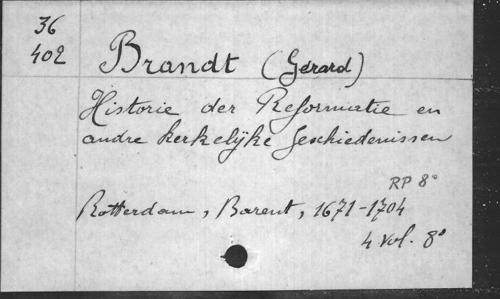 36
402
Brandt (Gérard)
Historie der Reformatie en
andre kerkelijke geschiedenissen
RP 8°
Rotterdam, Barent, 1671-1704
4 vol. 8°